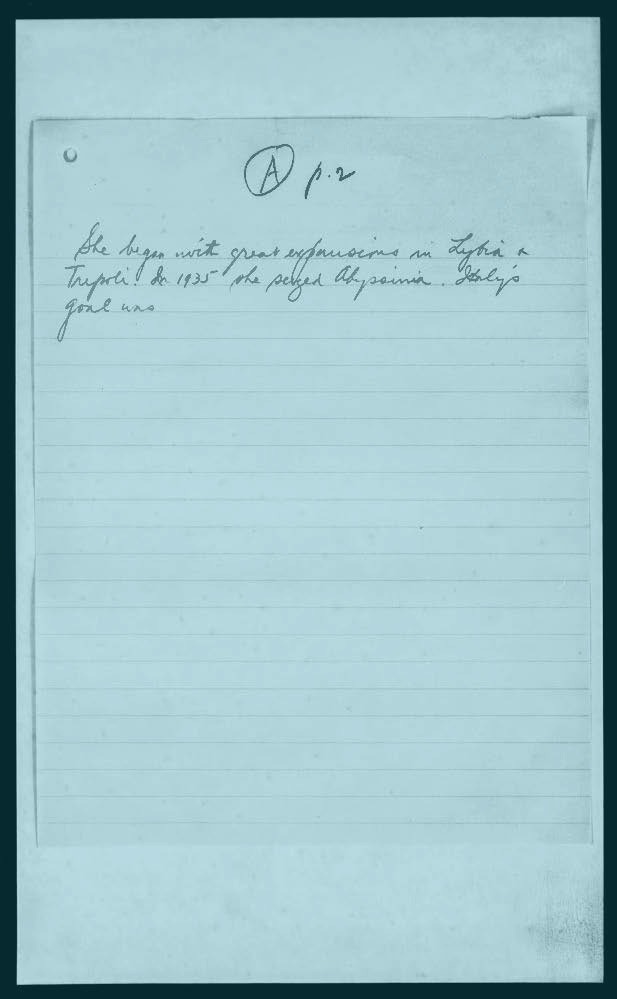 A p.2
She began with great expansions in Lybia &
Tripoli. In 1935 she seized Abyssinia. Italy's
goal was